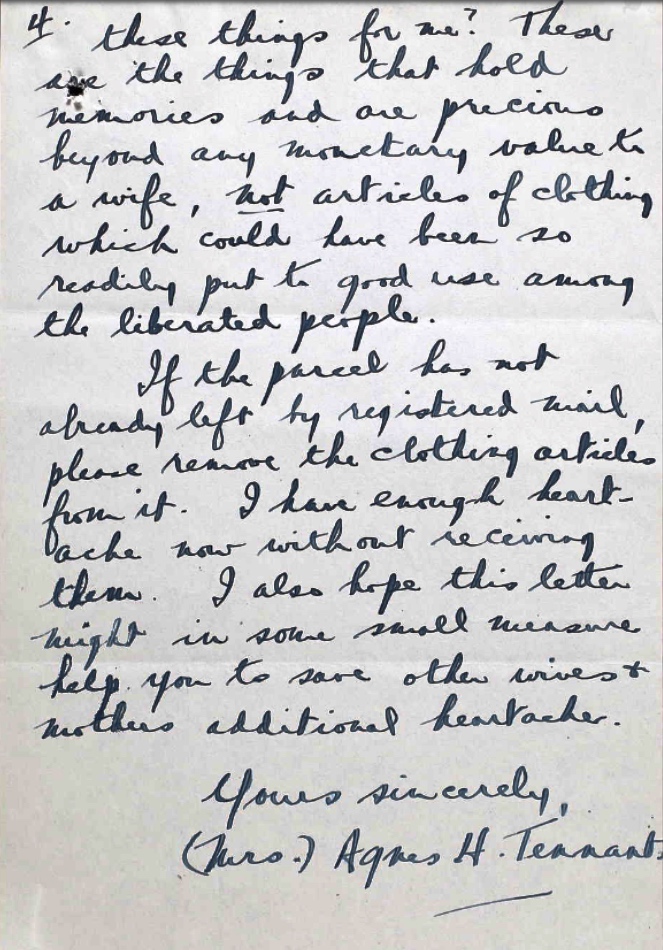 4. these things for me? These
are the things that hold
memories and are precious
beyond any monetary value to
a wife, not articles of clothing
which could have been so
readily put to good use among
the liberated people.
If the parcel has not
already left by registered mail,
please remove the clothing articles
from it. I have enough heart-
ache now without receiving
them. I also hope this letter
might in some small measure
help you to save other wives +
mothers additional heartaches.
Yours sincerely,
(Mrs.) Agnes H. Tennant.